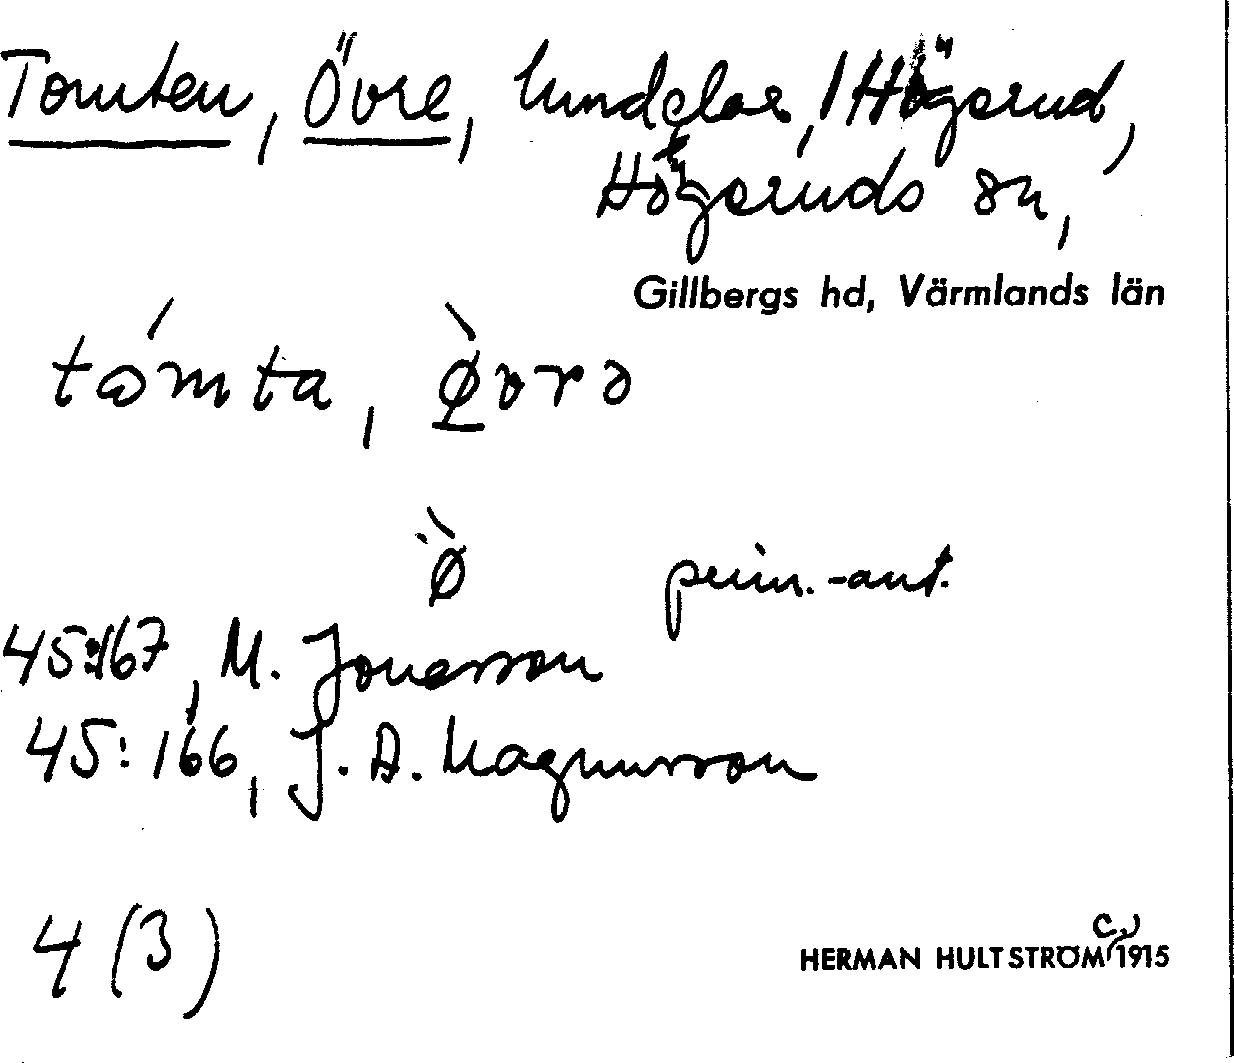 Tomten, Övre, hmdelar, i Högerud,
Högeruds sn,
Gillbergs hd, Värmlands län
tómta, ø̀vrə
ø̀ prim.-ant.
45:167, M. Jonasson
45:166, J. A. Magnusson
4 (3)
HERMAN HULTSTRÖM c. 1915